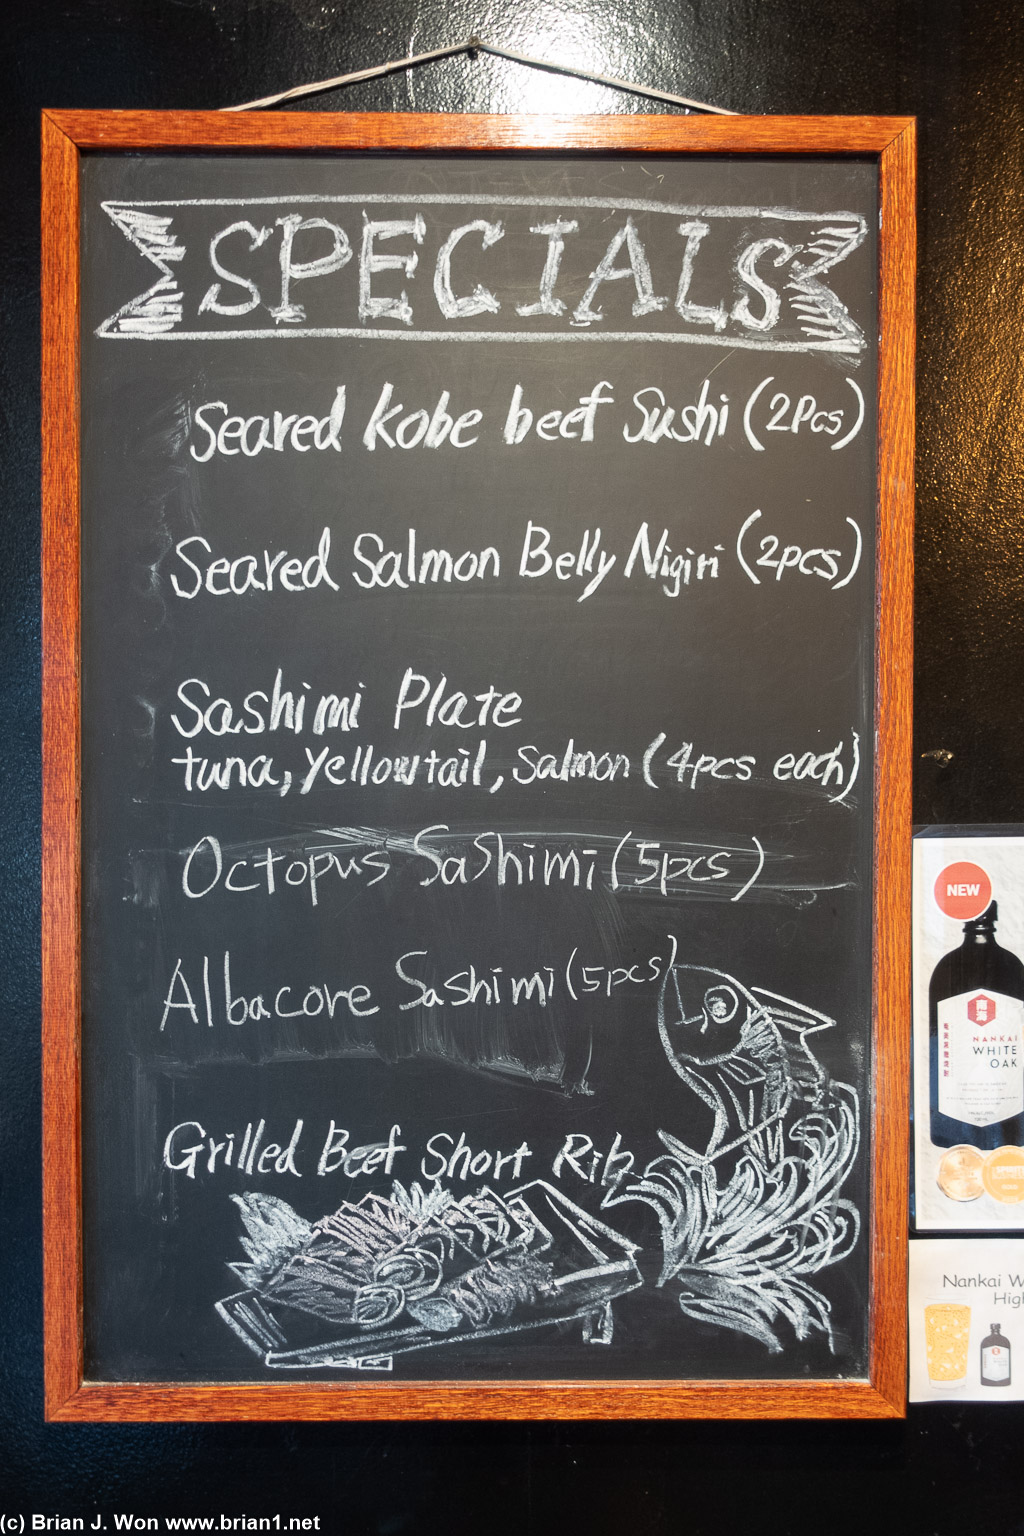 SPECIALS
Seared Kobe beef Sushi (2Pcs)
Seared Salmon Belly Nigiri (2pcs)
Sashimi Plate
tuna, Yellowtail, Salmon (4pcs each)
Octopus Sashimi (5pcs)
Albacore Sashimi (5pcs)
Grilled Beef Short Rib
NEW
NANKAI
WHITE
OAK
Nankai W
High
(c) Brian J. Won www.brian1.net